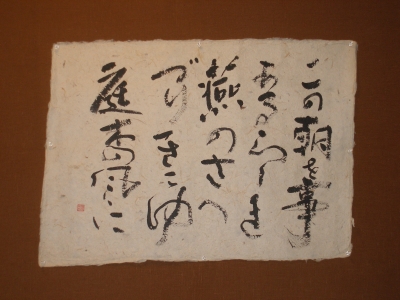 この朝を事
あるらしき
燕のさへ
づりきこゆ
庭木の